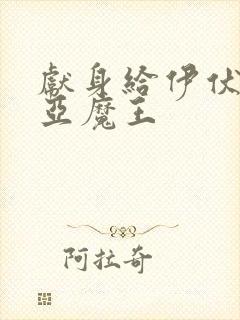 獻身給伊伏
亞魔王
阿拉奇